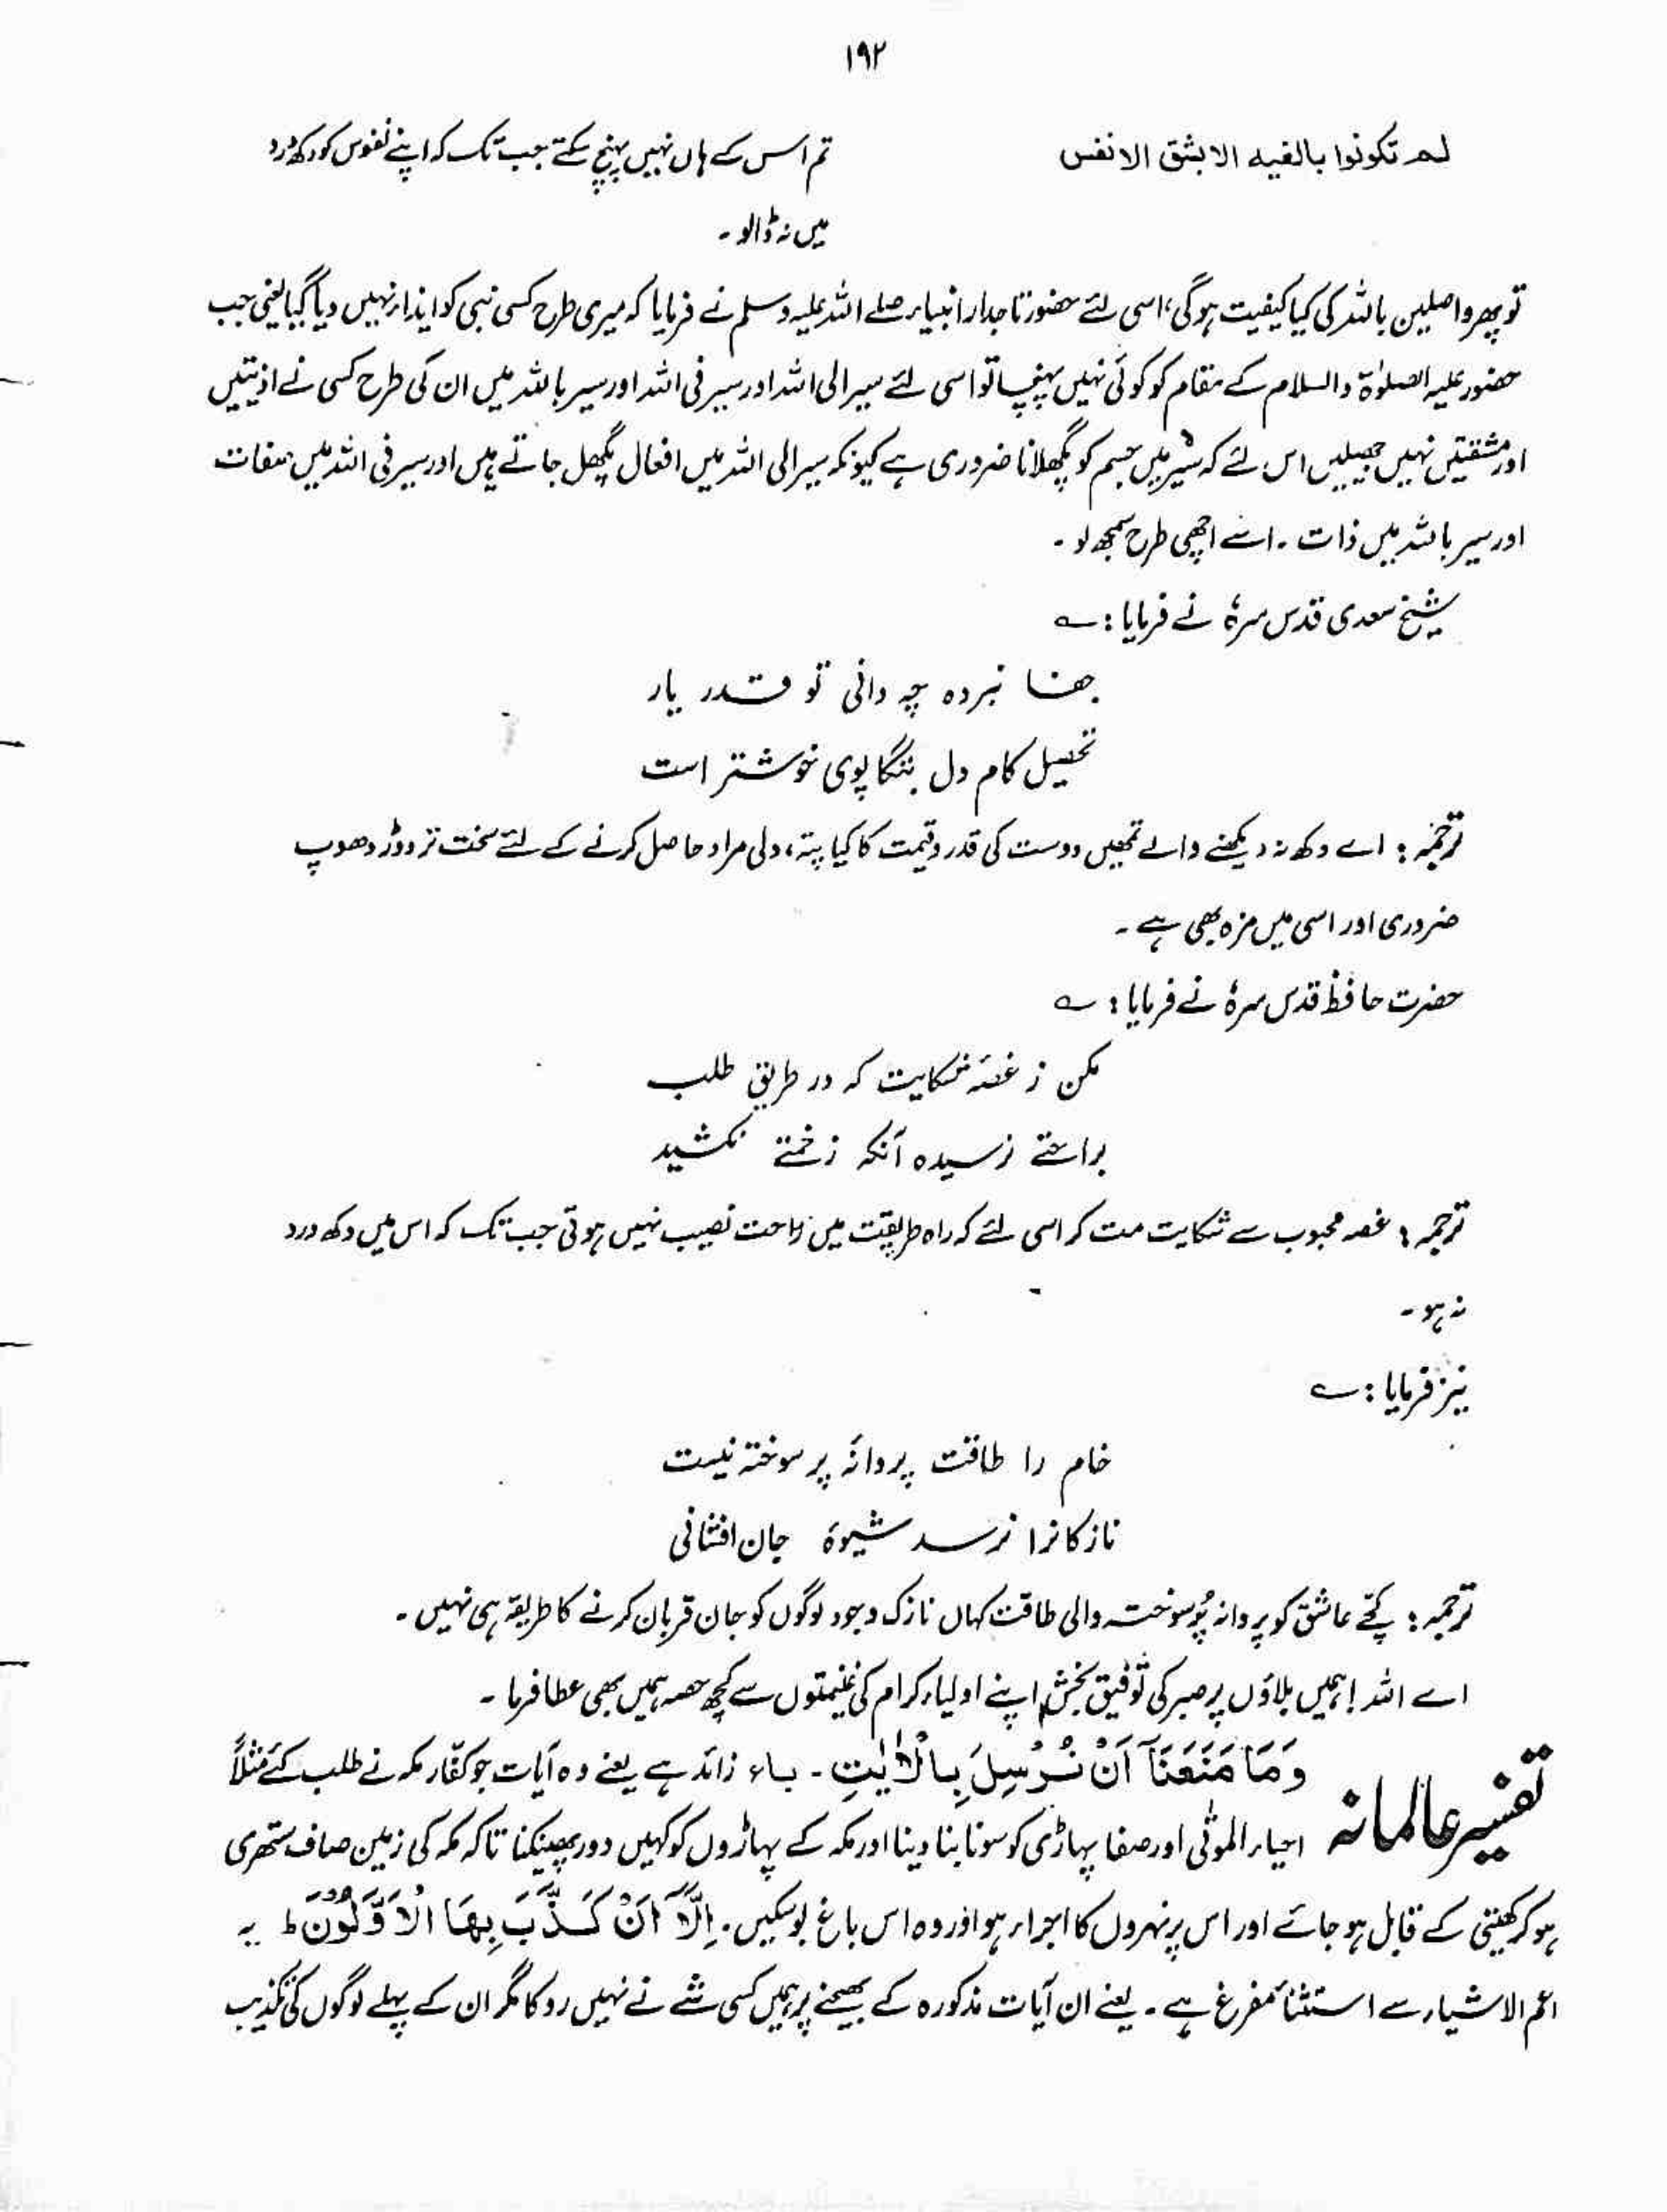 ۱۹۲
لم تكونوا بالغيه الا بشق الانفس
تم اس کے ہاں نہیں پہنچ سکتے جب تک کہ اپنے نفوس کو دکھ درد
میں نہ ڈالو ۔
تو پھر واصلین باللہ کی کیا کیفیت ہوگی، اسی لئے حضور تاجدار انبیاء صلے اللہ علیہ وسلم نے فرمایا کہ میری طرح کسی نبی کو ایذاء نہیں دیا گیا یعنی جب
حضور علیہ الصلوٰۃ والسلام کے مقام کو کوئی نہیں پہنچا تو اسی لئے سیر الی اللہ اور سیر فی اللہ اور سیر باللہ میں ان کی طرح کسی نے اذیتیں
اور مشقتیں نہیں جھیلیں اس لئے کہ سیر میں جسم کو پگھلانا ضروری ہے کیونکہ سیر الی اللہ میں افعال پگھل جاتے ہیں اور سیر فی اللہ میں صفات
اور سیر باللہ میں ذات ۔ اسے اچھی طرح سمجھ لو ۔
شیخ سعدی قدس سرہٗ نے فرمایا : ؎
جفا نبردہ چہ دانی تو قدر یار
تحصیل کام دل بتگاپوی خوشتر است
ترجمہ : اے دکھ نہ دیکھنے والے تمھیں دوست کی قدر و قیمت کا کیا پتہ، دلی مراد حاصل کرنے کے لئے سخت تر دوڑ دھوپ
ضروری اور اسی میں مزہ بھی ہے ۔
حضرت حافظ قدس سرہٗ نے فرمایا : ؎
مکن ز غصہ شکایت کہ در طریق طلب
براحتے نرسیدہ آنکہ زحمتے نکشید
ترجمہ : غصہ محبوب سے شکایت مت کر اسی لئے کہ راہ طریقت میں راحت نصیب نہیں ہوتی جب تک کہ اس میں دکھ درد
نہ ہو ۔
نیز فرمایا : ؎
خام را طاقت پروانۂ پر سوختہ نیست
نازکانرا نرسد شیوۂ جان افشانی
ترجمہ : کچے عاشق کو پروانہ پُر سوختہ والی طاقت کہاں نازک وجود لوگوں کو جان قربان کرنے کا طریقہ ہی نہیں ۔
اے اللہ ! ہمیں بلاؤں پر صبر کی توفیق بخش اپنے اولیاء کرام کی غنیمتوں سے کچھ حصہ ہمیں بھی عطا فرما ۔
تفسیر عالمانہ
وَمَا مَنَعَنَآ اَنْ نُّرْسِلَ بِالْاٰیٰتِ ۔ باء زائد ہے یعنے وہ آیات جو کفار مکہ نے طلب کئے مثلاً
احیاء الموتٰی اور صفا پہاڑی کو سونا بنا دینا اور مکہ کے پہاڑوں کو کہیں دور پھینکنا تاکہ مکہ کی زمین صاف ستھری
ہو کر کھیتی کے قابل ہو جائے اور اس پر نہروں کا اجراء ہو اور وہ اس باغ بو سکیں ۔ اِلَّآ اَنْ كَذَّبَ بِهَا الْاَوَّلُوْنَ ط یہ
اعم الاشیاء سے استثنا مفرغ ہے ۔ یعنے ان آیات مذکورہ کے بھیجنے پر ہمیں کسی شے نے نہیں روکا مگر ان کے پہلے لوگوں کی تکذیب